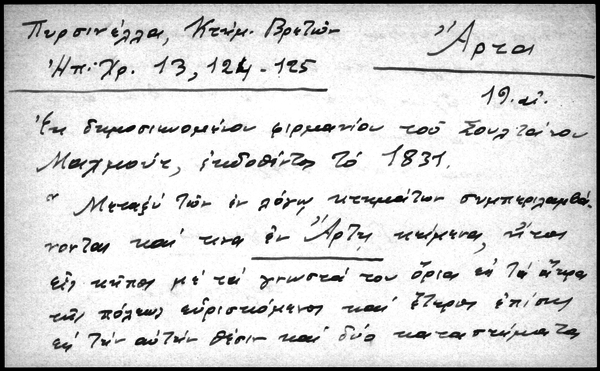 Πυρσινέλλα, Κτημ. Βρετῶν
Ἄρτα
Ἠπ. Χρ. 13, 124-125
19. αἰ.
Ἐκ δημοσιευομένου φιρμανίου τοῦ Σουλτάνου
Μαχμούτ, ἐκδοθέντος τό 1831.
" Μεταξύ τῶν ἐν λόγῳ κτημάτων συμπεριλαμβά-
νονται καί τινα ἐν Ἄρτῃ κείμενα, ἤτοι
εἷς κῆπος μέ τά γνωστά του ὅρια εἰς τά ἄκρα
τῆς πόλεως εὑρισκόμενος καί ἕτερος ἐπίσης
εἰς τήν αὐτήν θέσιν καί δύο καταστήματα